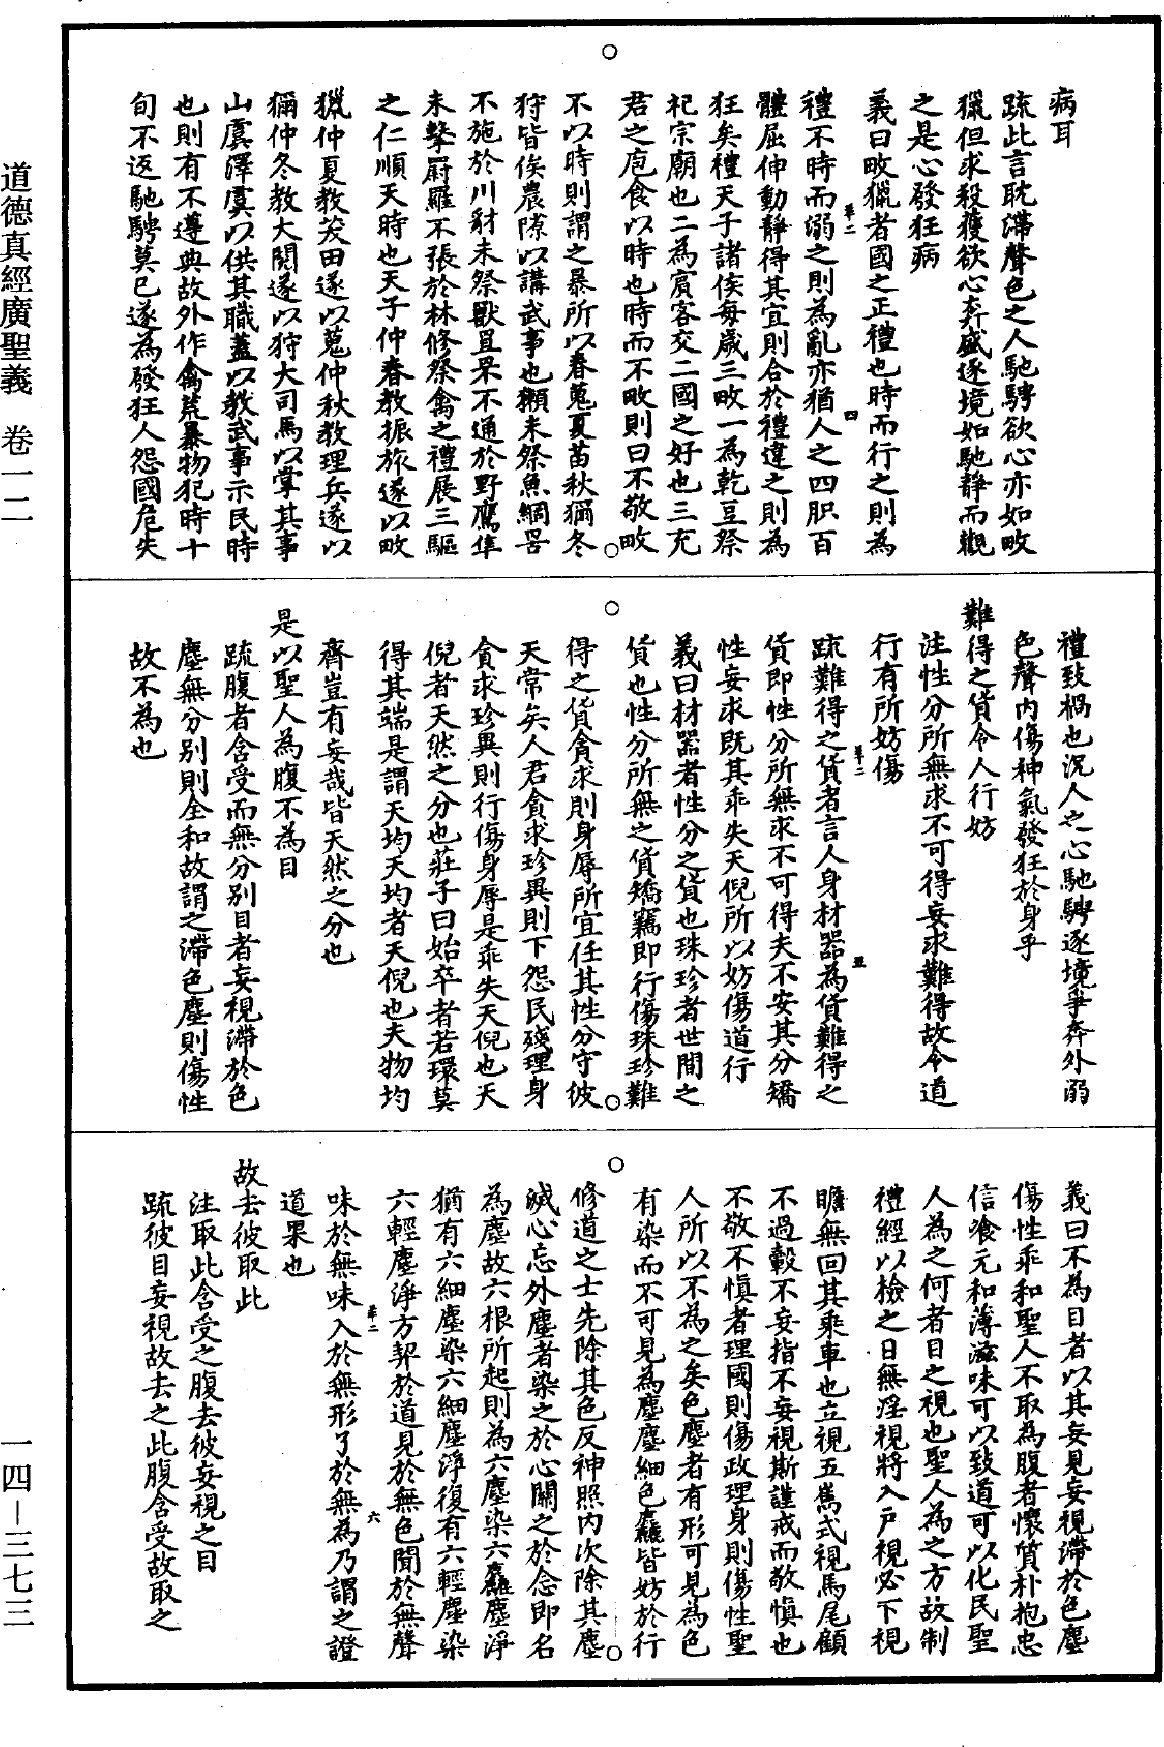 病耳
疏此言耽滯聲色之人馳騁欲心亦如畋
獵但求殺獲欲心奔盛逐境如馳靜而觀
之是心發狂病
義曰畋獵者國之正禮也時而行之則為
禮不時而溺之則為亂亦猶人之四肢百
體屈伸動靜得其宜則合於禮違之則為
狂矣禮天子諸侯每歲三畋一為乾豆祭
祀宗廟也二為賓客交二國之好也三充
君之庖食以時也時而不畋則曰不敬畋
不以時則謂之暴所以春蒐夏苗秋獮冬
狩皆俟農隙以講武事也獺未祭魚網罟
不施於川豺未祭獸罝罘不通於野鷹隼
未擊罻羅不張於林修祭禽之禮展三驅
之仁順天時也天子仲春教振旅遂以畋
獵仲夏教茇田遂以蒐仲秋教理兵遂以
獮仲冬教大閱遂以狩大司馬以掌其事
山虞澤虞以供其職蓋以教武事示民時
也則有不遵典故外作禽荒暴物犯時十
旬不返馳騁莫已遂為發狂人怨國危失
禮致禍也況人之心馳騁逐境爭奔外溺
色聲內傷神氣發狂於身乎
難得之貨令人行妨
注性分所無求不可得妄求難得故令道
行有所妨傷
疏難得之貨者言人身材器為貨難得之
貨即性分所無求不可得夫不安其分矯
性妄求既其乖失天倪所以妨傷道行
義曰材器者性分之貨也珠珍者世間之
貨也性分所無之貨矯竊即行傷珠珍難
得之貨貪求則身辱所宜任其性分守彼
天常矣人君貪求珍異則下怨民殘理身
貪求珍異則行傷身辱是乖失天倪也天
倪者天然之分也莊子曰始卒者若環莫
得其端是謂天均天均者天倪也夫物均
齊豈有妄哉皆天然之分也
是以聖人為腹不為目
疏腹者含受而無分別目者妄視滯於色
塵無分別則全和故謂之滯色塵則傷性
故不為也
義曰不為目者以其妄見妄視滯於色塵
傷性乖和聖人不取為腹者懷質朴抱忠
信飡元和薄滋味可以致道可以化民聖
人為之何者目之視也聖人為之方故制
禮經以檢之曰無淫視將入戶視必下視
瞻無回其乘車也立視五嶲式視馬尾顧
不過轂不妄指不妄視斯謹戒而敬慎也
不敬不慎者理國則傷政理身則傷性聖
人所以不為之矣色塵者有形可見為色
有染而不可見為塵塵細色麤皆妨於行
修道之士先除其色反神照內次除其塵
滅心忘外塵者染之於心關之於念即名
為塵故六根所起則為六塵染六麤塵淨
猶有六細塵染六細塵淨復有六輕塵染
六輕塵淨方契於道見於無色聞於無聲
味於無味入於無形了於無為乃謂之證
道果也
故去彼取此
注取此含受之腹去彼妄視之目
疏彼目妄視故去之此腹含受故取之
道德真經廣聖義 卷一二
一四－三七三